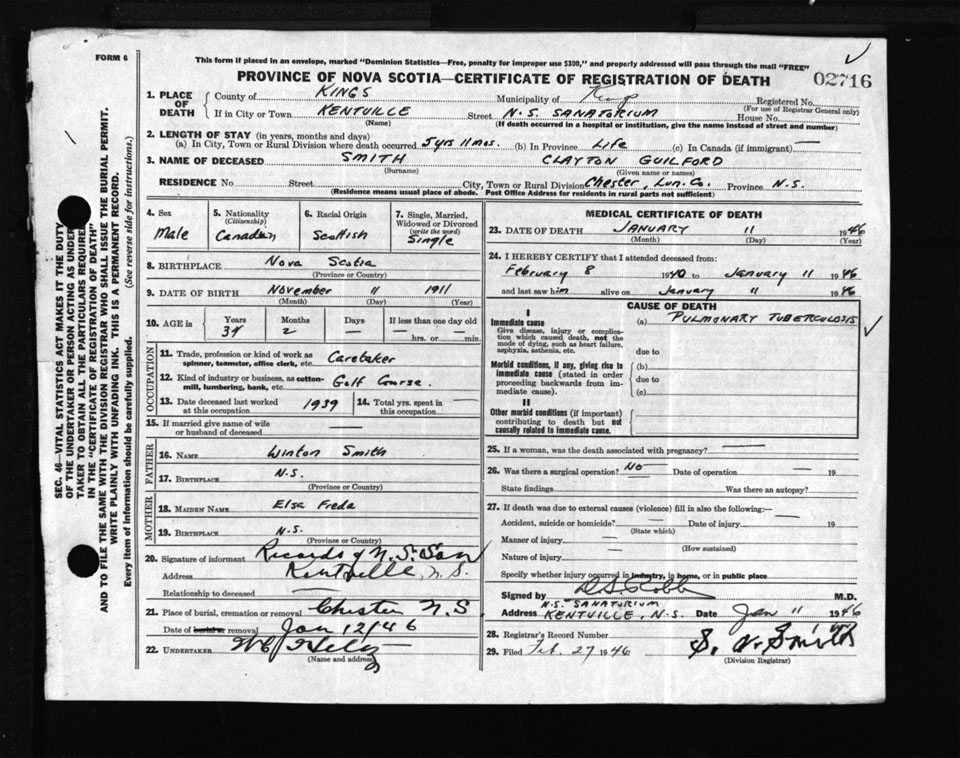 FORM 6
This form if placed in an envelope, marked "Dominion Statistics—Free, penalty for improper use $300," and properly addressed will pass through the mail "FREE"
PROVINCE OF NOVA SCOTIA—CERTIFICATE OF REGISTRATION OF DEATH 02716
1. PLACE OF DEATH
County of KINGS Municipality of Kings Registered No.
(For use of Registrar General only)
If in City or Town KENTVILLE Street N.S. SANATORIUM House No.
(Name) (If death occurred in a hospital or institution, give the name instead of street and number)
2. LENGTH OF STAY (in years, months and days)
(a) In City, Town or Rural Division where death occurred 5 yrs 11 mos. (b) In Province Life (c) In Canada (if immigrant) —
3. NAME OF DECEASED SMITH CLAYTON GUILFORD
(Surname) (Given name or names)
RESIDENCE No. Street City, Town or Rural Division Chester, Lun. Co. Province N.S.
(Residence means usual place of abode. Post Office Address for residents in rural parts not sufficient)
4. Sex
Male
5. Nationality
(Citizenship)
Canadian
6. Racial Origin
Scottish
7. Single, Married, Widowed or Divorced
(write the word)
Single
8. BIRTHPLACE Nova Scotia
(Province or Country)
9. DATE OF BIRTH November 11 1911
(Month) (Day) (Year)
10. AGE in Years Months Days If less than one day old
34 2 — hrs. or — min.
OCCUPATION
11. Trade, profession or kind of work as spinner, teamster, office clerk, etc. Caretaker
12. Kind of industry or business, as cotton-mill, lumbering, bank, etc. Golf Course.
13. Date deceased last worked at this occupation 1939
14. Total yrs. spent in this occupation —
15. If married give name of wife or husband of deceased —
FATHER
16. NAME Winton Smith
17. BIRTHPLACE N.S.
(Province or Country)
MOTHER
18. MAIDEN NAME Elsa Freda
19. BIRTHPLACE N.S.
(Province or Country)
20. Signature of informant Records of N.S. San
Address Kentville, N.S.
Relationship to deceased —
21. Place of burial, cremation or removal Chester N.S.
Date of burial or removal Jan 12/46
22. UNDERTAKER
(Name and address)
MEDICAL CERTIFICATE OF DEATH
23. DATE OF DEATH JANUARY 11 1946
(Month) (Day) (Year)
24. I HEREBY CERTIFY that I attended deceased from:
February 8 1940 to January 11 1946
and last saw him alive on January 11 1946
CAUSE OF DEATH
I
Immediate cause
Give disease, injury or complication which caused death, not the mode of dying, such as heart failure, asphyxia, asthenia, etc.
(a) PULMONARY TUBERCULOSIS
due to
Morbid conditions, if any, giving rise to immediate cause (stated in order proceeding backwards from immediate cause).
(b)
due to
(c)
II
Other morbid conditions (if important) contributing to death but not causally related to immediate cause.
25. If a woman, was the death associated with pregnancy? —
26. Was there a surgical operation? No Date of operation — 19
State findings Was there an autopsy?
27. If death was due to external causes (violence) fill in also the following:—
Accident, suicide or homicide? — Date of injury — 19
(State which)
Manner of injury —
(How sustained)
Nature of injury —
Specify whether injury occurred in industry, in home, or in public place
Signed by M.D.
Address N.S. SANATORIUM KENTVILLE, N.S. Date Jan 11 1946
28. Registrar's Record Number
29. Filed Feb. 27 1946 S. N. Smith
(Division Registrar)
SEC. 46—VITAL STATISTICS ACT MAKES IT THE DUTY OF THE UNDERTAKER OR PERSON ACTING AS UNDERTAKER TO OBTAIN ALL THE PARTICULARS REQUIRED IN THE "CERTIFICATE OF REGISTRATION OF DEATH" AND TO FILE THE SAME WITH THE DIVISION REGISTRAR WHO SHALL ISSUE THE BURIAL PERMIT.
WRITE PLAINLY WITH UNFADING INK. THIS IS A PERMANENT RECORD.
Every item of information should be carefully supplied. (See reverse side for instructions.)